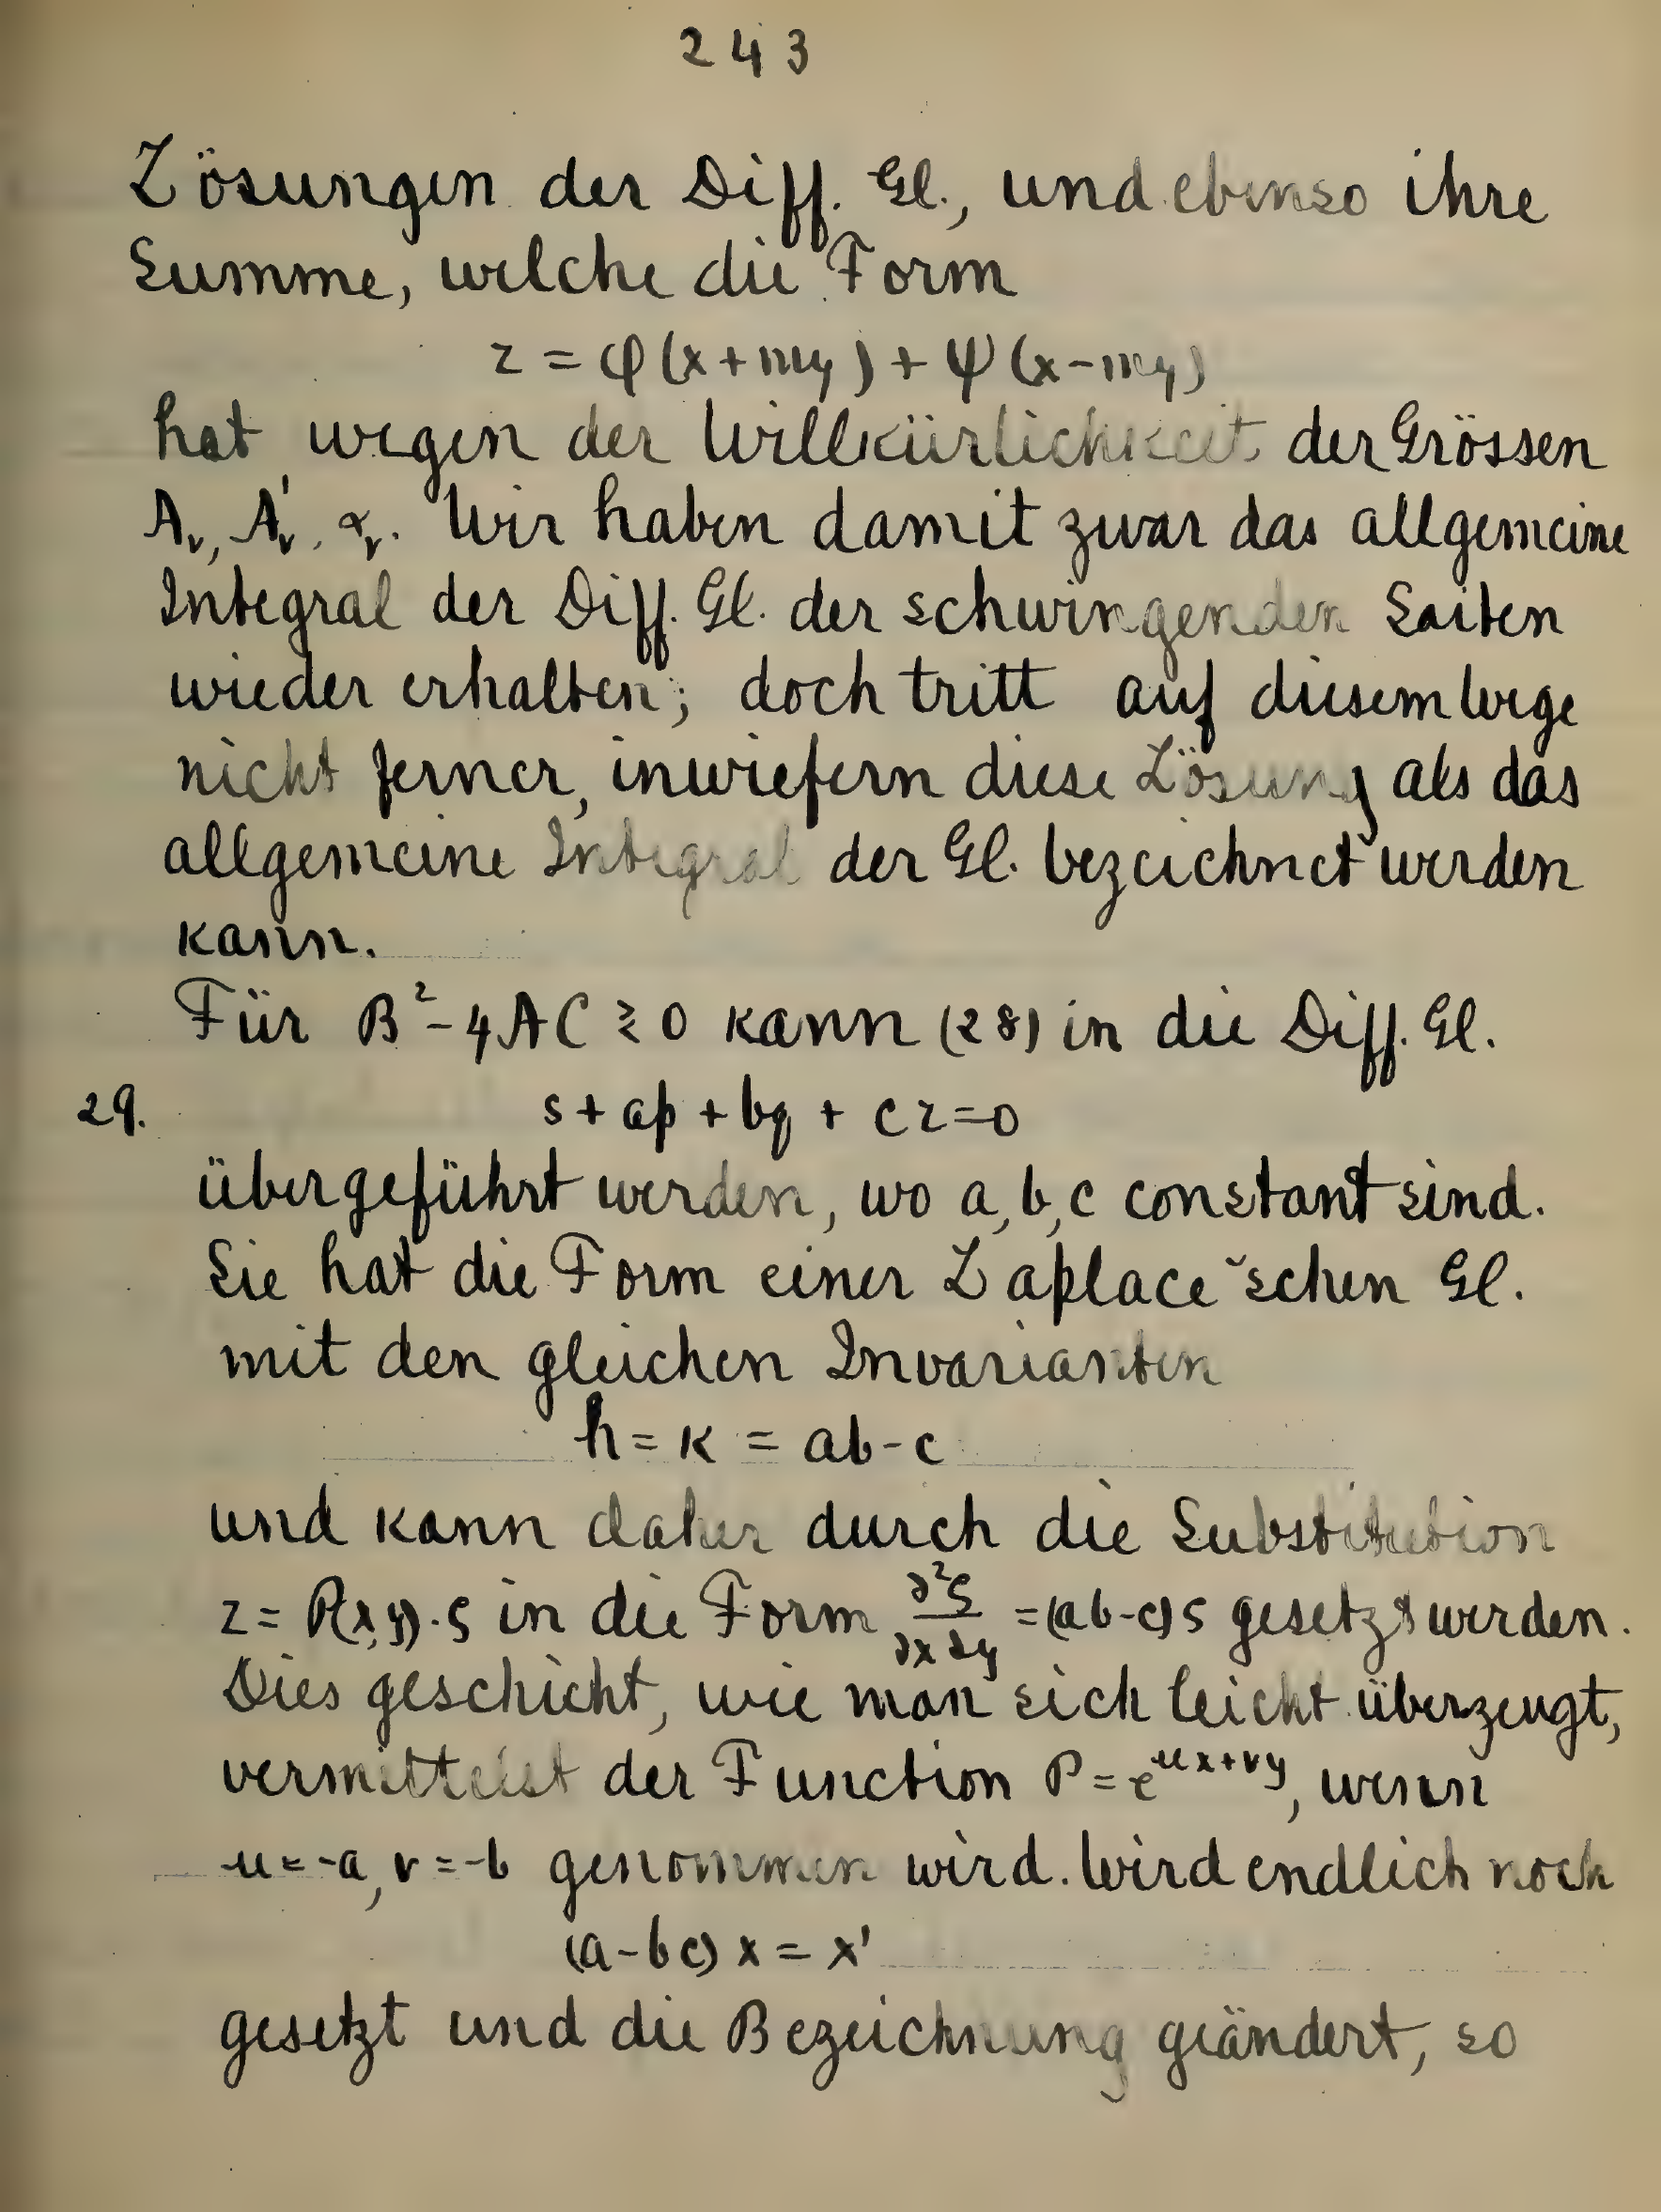 243
Lösungen der Diff. Gl., und ebenso ihre
Summe, welche die Form
z = φ(x+my) + ψ(x-my)
hat, wegen der Willkürlichkeit der Grössen
Aᵥ, A'ᵥ, αᵥ. Wir haben damit zwar das allgemeine
Integral der Diff. Gl. der schwingenden Saiten
wieder erhalten; doch tritt auf diesem Wege
nicht ferner, inwiefern diese Lösung als das
allgemeine Integral der Gl. bezeichnet werden
kann.
Für B²-4AC ≷ 0 kann (28) in die Diff. Gl.
29. s + ap + bq + cz=0
übergeführt werden, wo a, b, c constant sind.
Sie hat die Form einer Laplace'schen Gl.
mit den gleichen Invarianten
h = k = ab-c
und kann daher durch die Substitution
z = P(x,y)·ζ in die Form ∂²ζ/∂x∂y = (ab-c)ζ gesetzt werden.
Dies geschieht, wie man sich leicht überzeugt,
vermittelst der Function P = e^{ux+vy}, wenn
u = -a, v = -b genommen wird. Wird endlich noch
(a-bc) x = x'
gesetzt und die Bezeichnung geändert, so